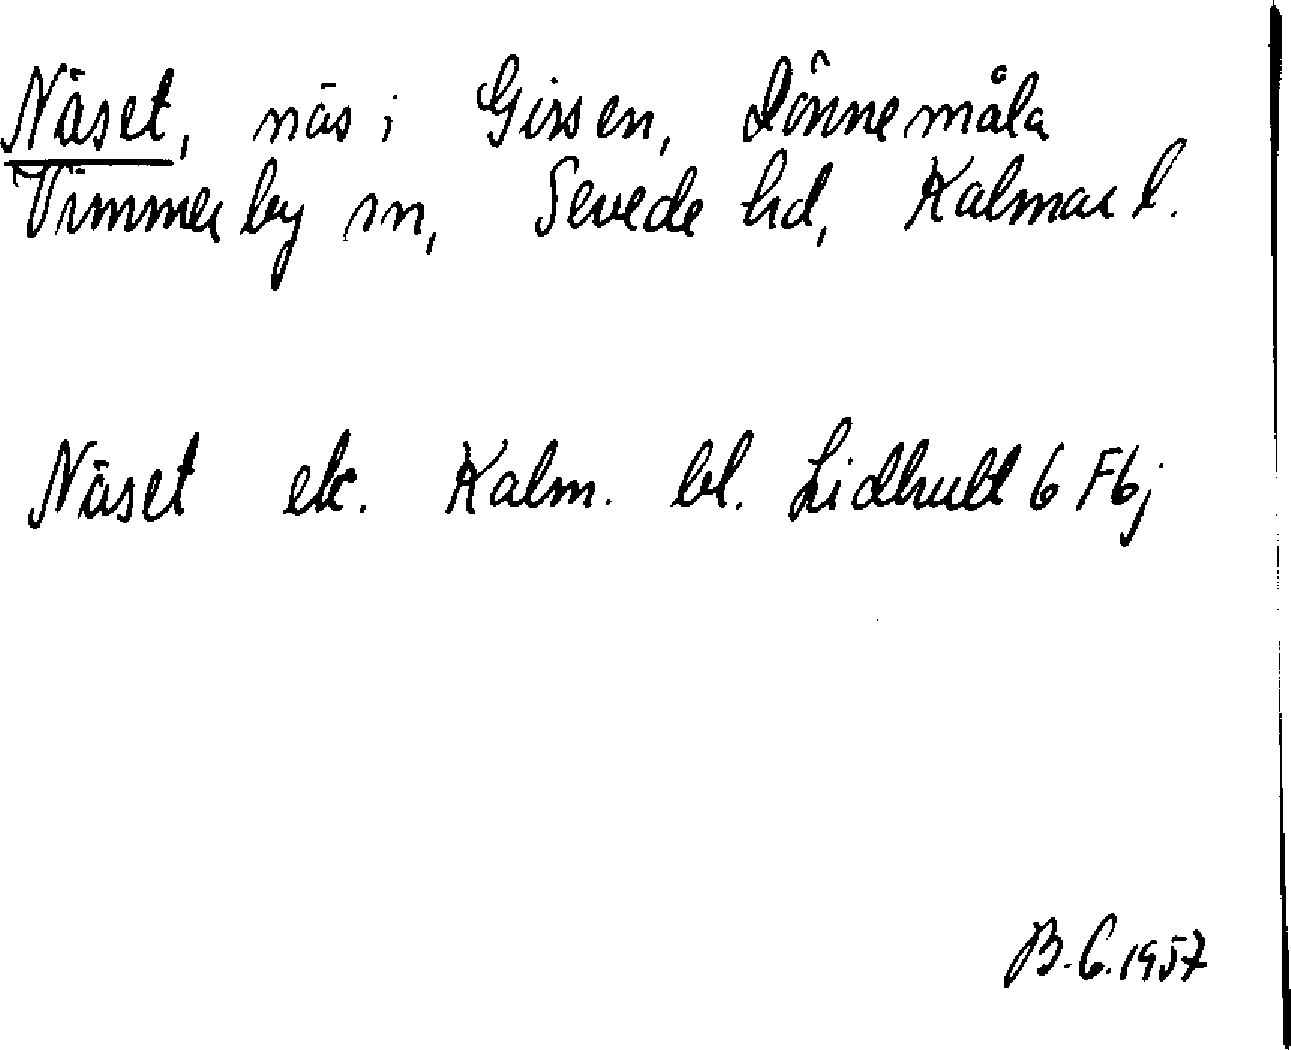 Näset, näs i Gissen, Lönnemåla
Vimmerby sn, Sevede hd, Kalmar l.
Näset ek. Kalm. bl. Lidhult 6 F6j
B.G.1957